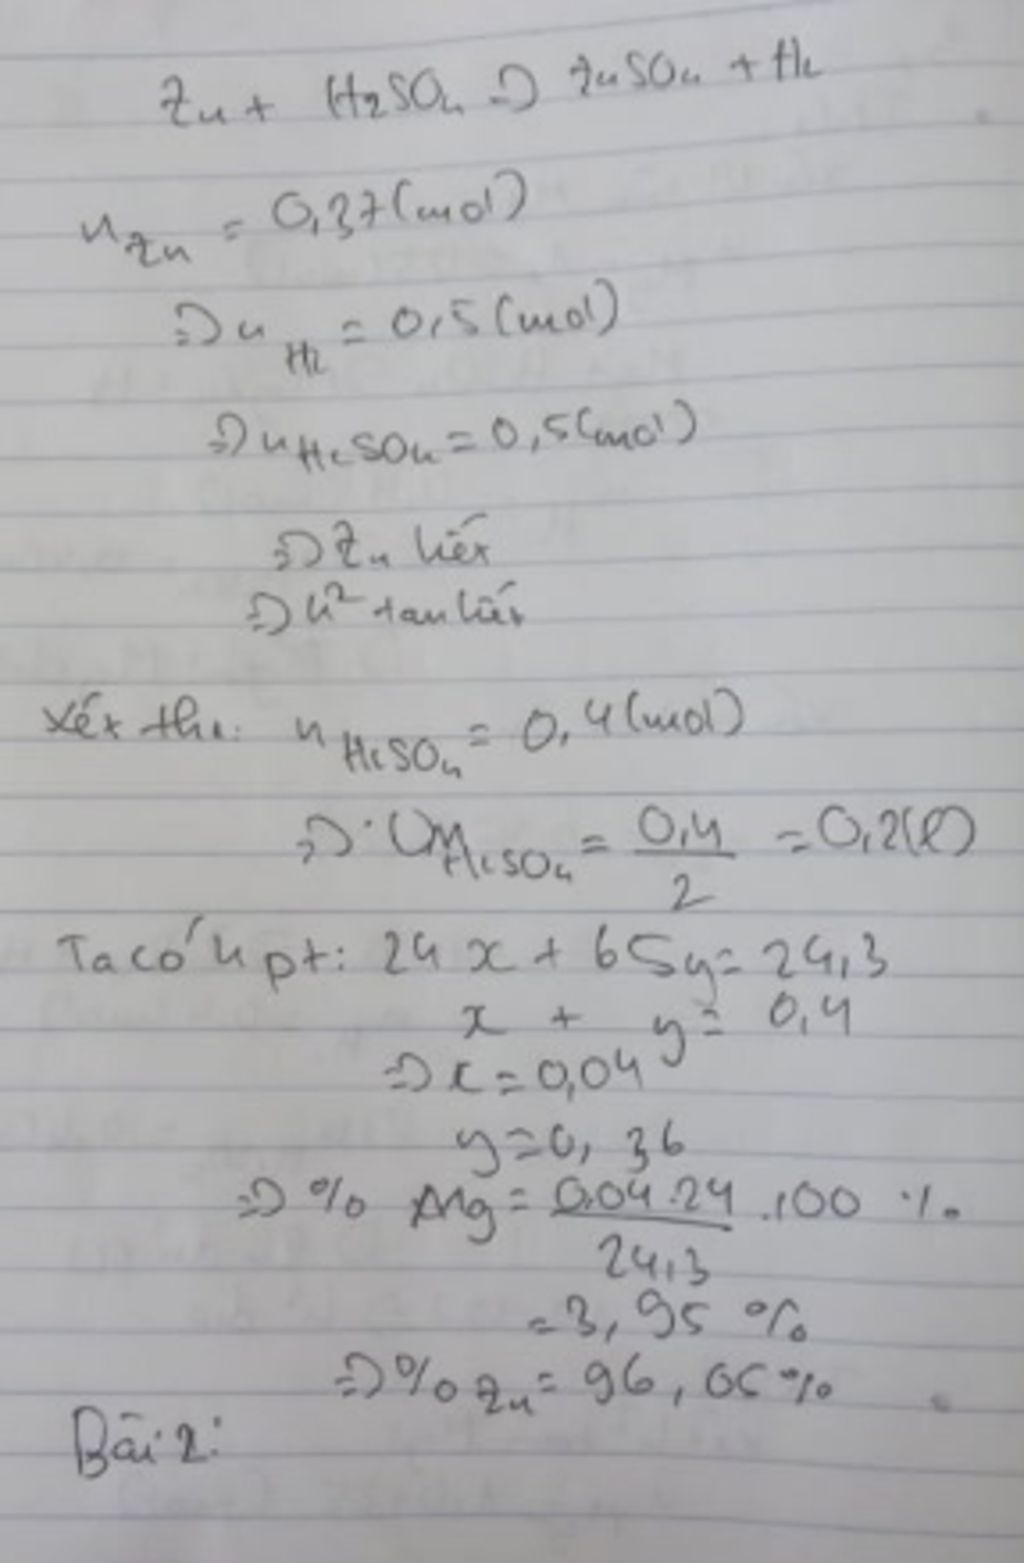 Zn + H2SO4 => ZnSO4 + H2
nZn = 0,37 (mol)
=> nH2 = 0,5 (mol)
=> nH2SO4 = 0,5 (mol)
=> Zn hết
=> h² tan hết
Xét th2: nH2SO4 = 0,4 (mol)
=> CM H2SO4 = 0,4/2 = 0,2(l)
Ta có h pt: 24x + 65y = 24,3
x + y = 0,4
=> x = 0,04
y = 0,36
=> % Mg = 0,04.24/24,3 .100 %
= 3,95 %
=> % Zn = 96,05 %
Bài 2: